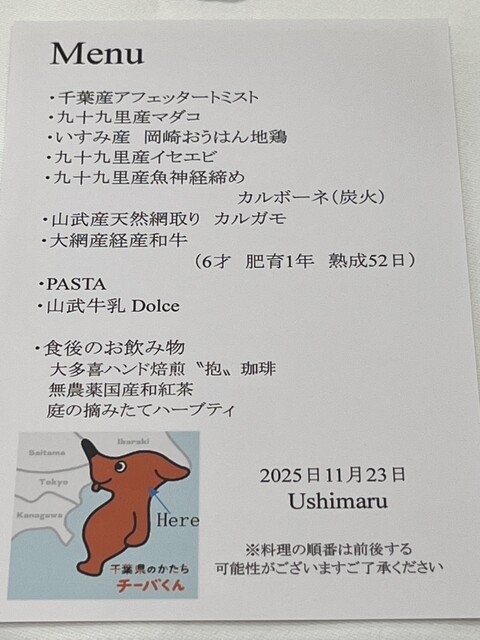 Menu
・千葉産アフェッタートミスト
・九十九里産マダコ
・いすみ産 岡崎おうはん地鶏
・九十九里産イセエビ
・九十九里産魚神経締め
カルボーネ（炭火）
・山武産天然網取り カルガモ
・大網産経産和牛
（6才 肥育1年 熟成52日）
・PASTA
・山武牛乳 Dolce
・食後のお飲み物
大多喜ハンド焙煎〝抱〟珈琲
無農薬国産和紅茶
庭の摘みたてハーブティ
Saitama
Ibaraki
Tokyo
Kanagawa
Here
千葉県のかたち
チーバくん
2025日11月23日
Ushimaru
※料理の順番は前後する
可能性がございますご了承ください